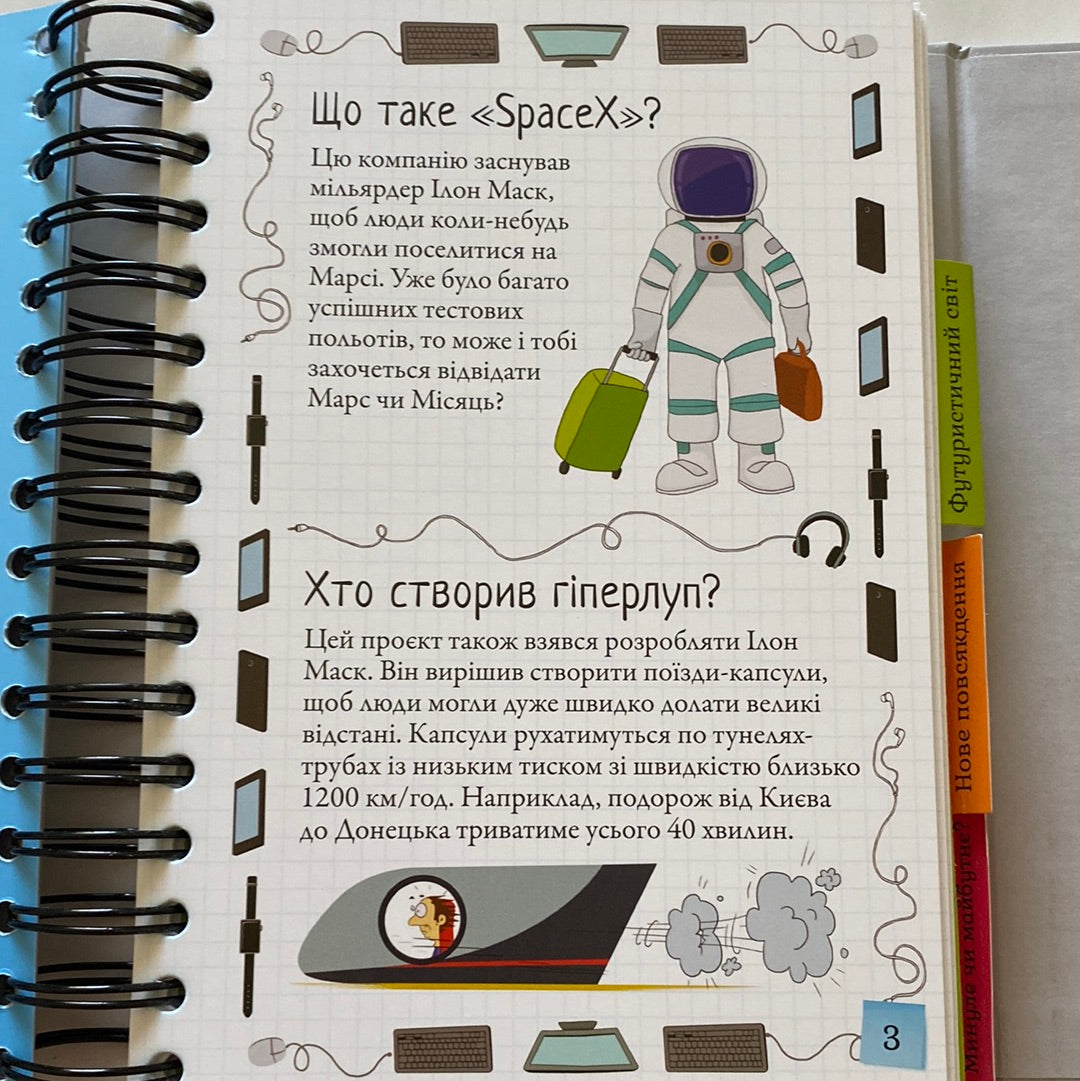 Що таке «SpaceX»?
Цю компанію заснував
мільярдер Ілон Маск,
щоб люди коли-небудь
змогли поселитися на
Марсі. Уже було багато
успішних тестових
польотів, то може і тобі
захочеться відвідати
Марс чи Місяць?
Хто створив гіперлуп?
Цей проєкт також взявся розробляти Ілон
Маск. Він вирішив створити поїзди-капсули,
щоб люди могли дуже швидко долати великі
відстані. Капсули рухатимуться по тунелях-
трубах із низьким тиском зі швидкістю близько
1200 км/год. Наприклад, подорож від Києва
до Донецька триватиме усього 40 хвилин.
3
Футуристичний світ
Нове повсякдення
Минуле чи майбутнє?